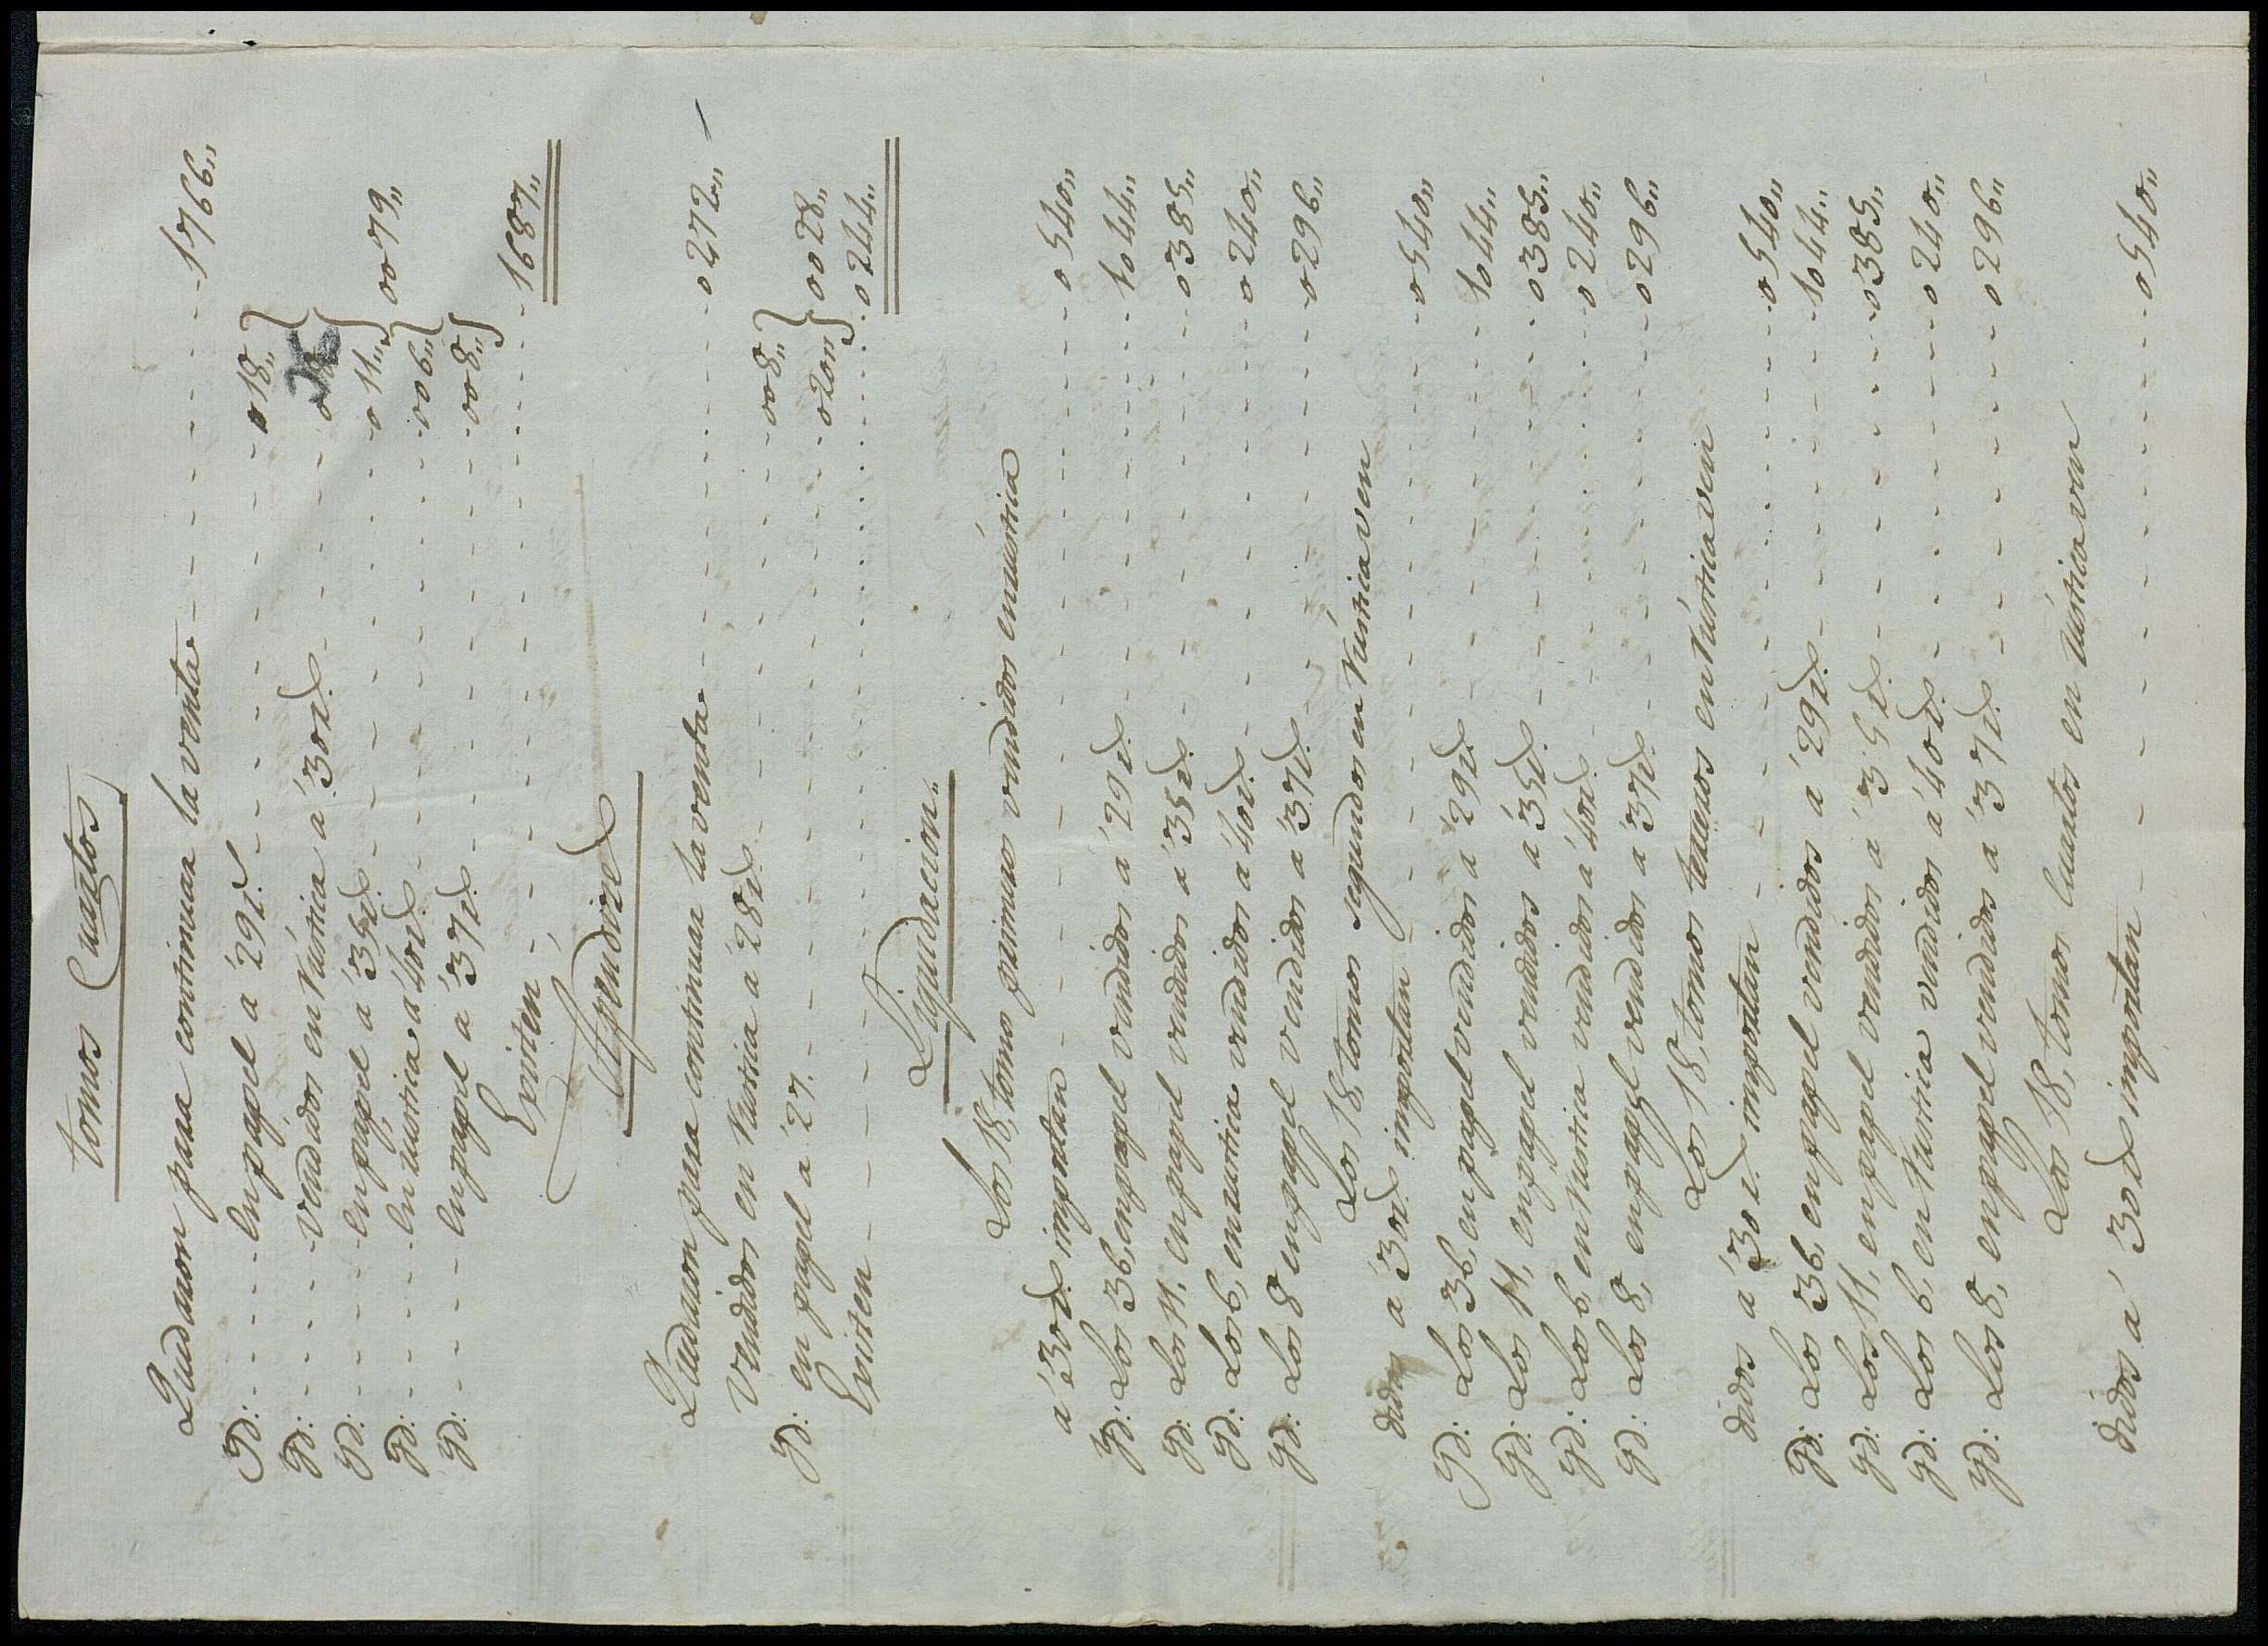 tomos Cuartos
Quedaron para continuar la venta - - - - - - 1766„
Yd: - - - - - en papel a 29 rs. - - - - - - - - 018„
Yd: - - - - - vendidos en rústica á 30 rs. - - - - -
Yd: - - - - - en papel á 35 rs. - - - - - - - - 011„ } 0079„
Yd: - - - - - en rustica á 40 rs. - - - - - - - 006„
Yd: - - - - - en papel a 37 rs. - - - - - - - - 008„
Existen - - - - - - - - - - - - 1687„
Apendice
Quedaron para continuar la venta - - - - - - 0272„
Vendidos en Rustica a 28 rs. - - - - - - - - 008„ }
Yd: en papel a 27. - - - - - - - - - - - 020„ } 0028„
Existen - - - - - - - - - - - - - - - 0244„
Liquidacion„
Los 18, tomos primeros vendidos en rústica
a 30 rs. importan - - - - - - - - - - - - 0540„
Yd: Los 36, en papel vendidos a 29 rs. - - - - - - 1044„
Yd: Los 11, en papel vendidos á 35 rs. - - - - - - 0385„
Yd: Los 6, en rustica vendidos a 40 rs. - - - - - - 0240„
Yd: Los 8 en papel vendidos a 37 rs. - - - - - - 0296„
Los 18, tomos segundos en Rústica ven
didos a 30 rs. importan - - - - - - - - - - 0540„
Yd: Los 36, en papel vendidos a 29 rs. - - - - - - 1044„
Yd: Los 11, en papel vendidos a 35 rs. - - - - - - 0385„
Yd: Los 6, en Rustica vendidos a 40 rs. - - - - - - 0240„
Yd: Los 8, en papel vendidos a 37 rs. - - - - - - 0296„
Los 18, tomos terceros en Rústica ven
didos a 30 rs. importan - - - - - - - - - - 0540„
Yd: Los 36, en papel vendidos a 29 rs. - - - - - - 1044„
Yd: Los 11, en papel vendidos a 35 rs. - - - - - - 0385„
Yd: Los 6, en Rustica vendidos a 40 rs. - - - - - - 0240„
Yd: Los 8, en papel vendidos a 37 rs. - - - - - - 0296„
Los 18, tomos Cuartos en rústica ven
didos a 30 rs. importan - - - - - - - - - - 0540„